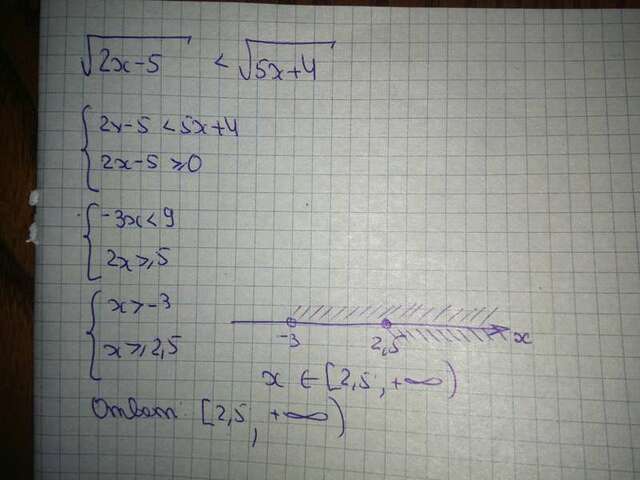 √2x-5 < √5x+4
{ 2x-5 < 5x+4
2x-5 ⩾0
{ -3x<9
2x⩾5
{ x>-3
x⩾2,5
-3 2,5 x
x ∈ [2,5, +∞)
Ответ: [2,5, +∞)